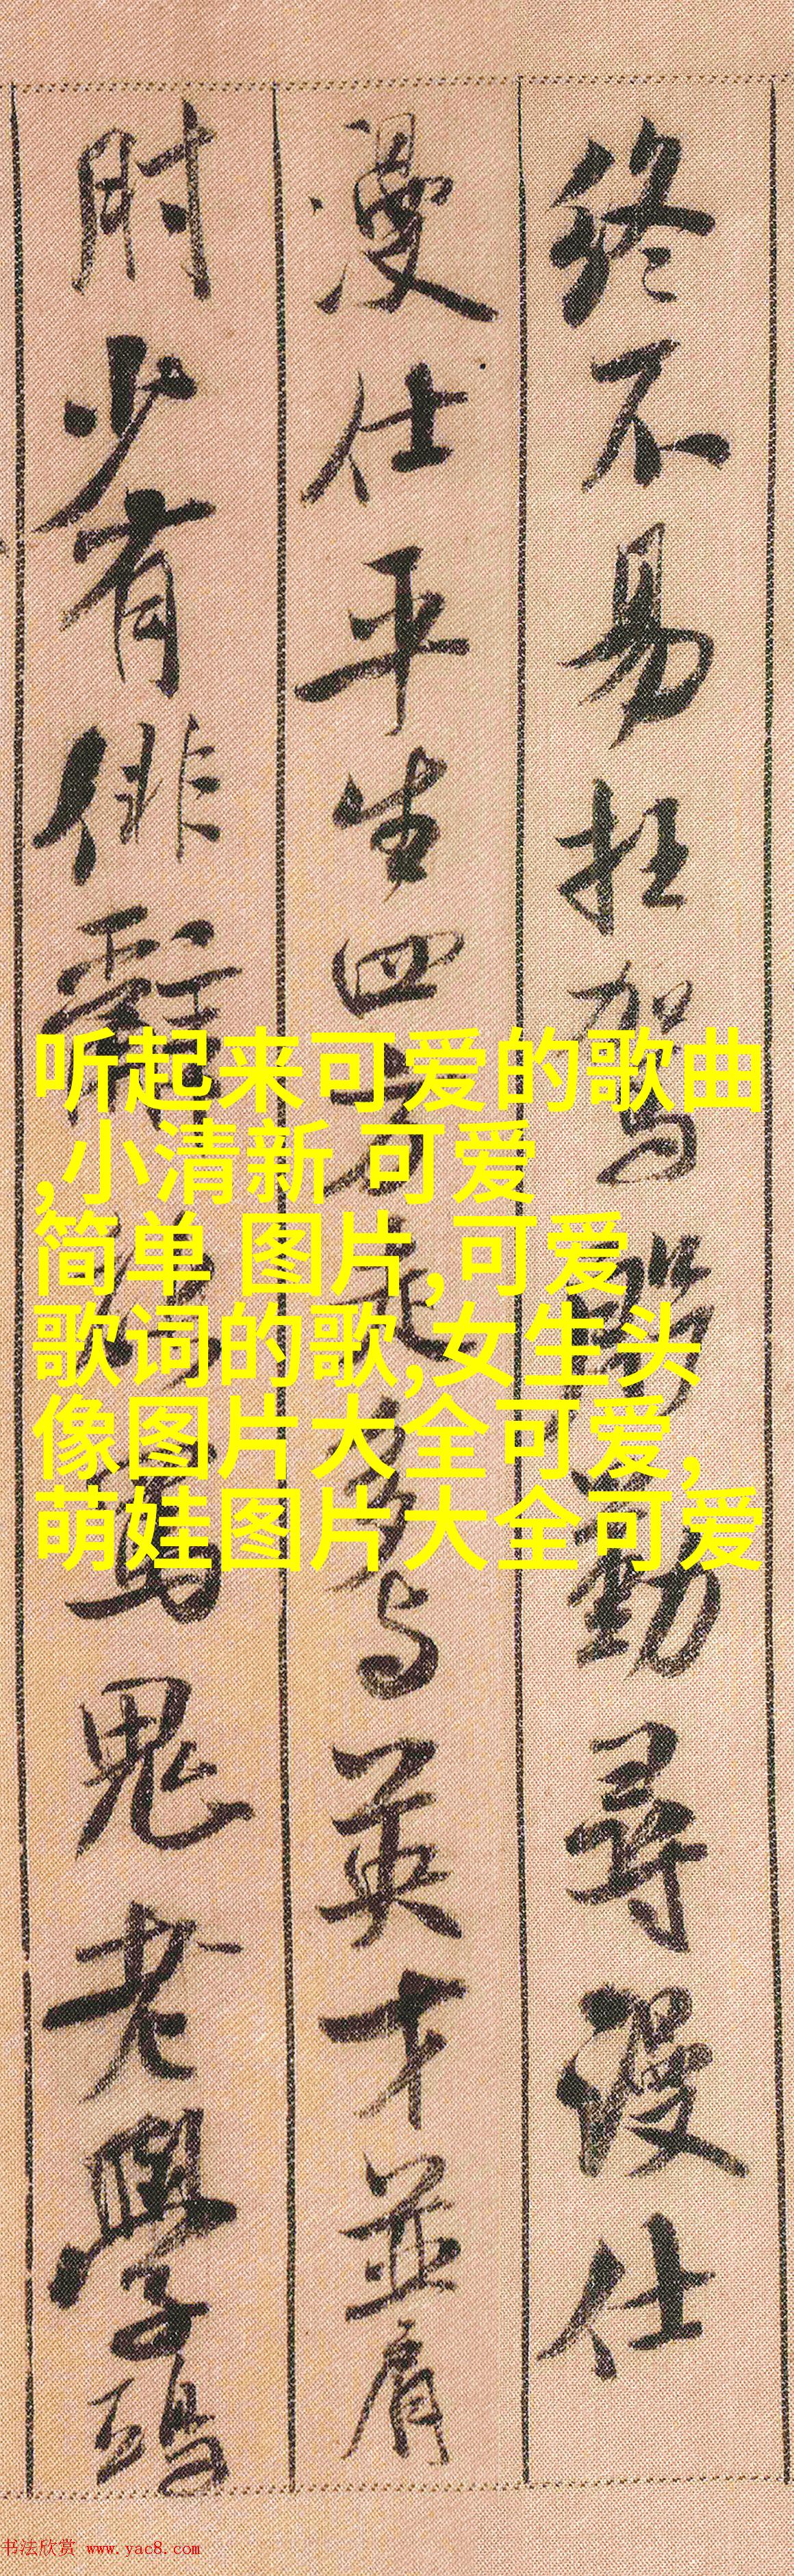 終不易枉駕殷勤尋漫仕
漫仕平生四方走多与英才並肩
肘少有俳辭能罵鬼老學鵄
听起来可爱的歌曲
,小清新 可爱
简单 图片,可爱
歌词的歌,女生头
像图片大全可爱,
萌娃图片大全可爱
书法欣赏 www.yac8.com